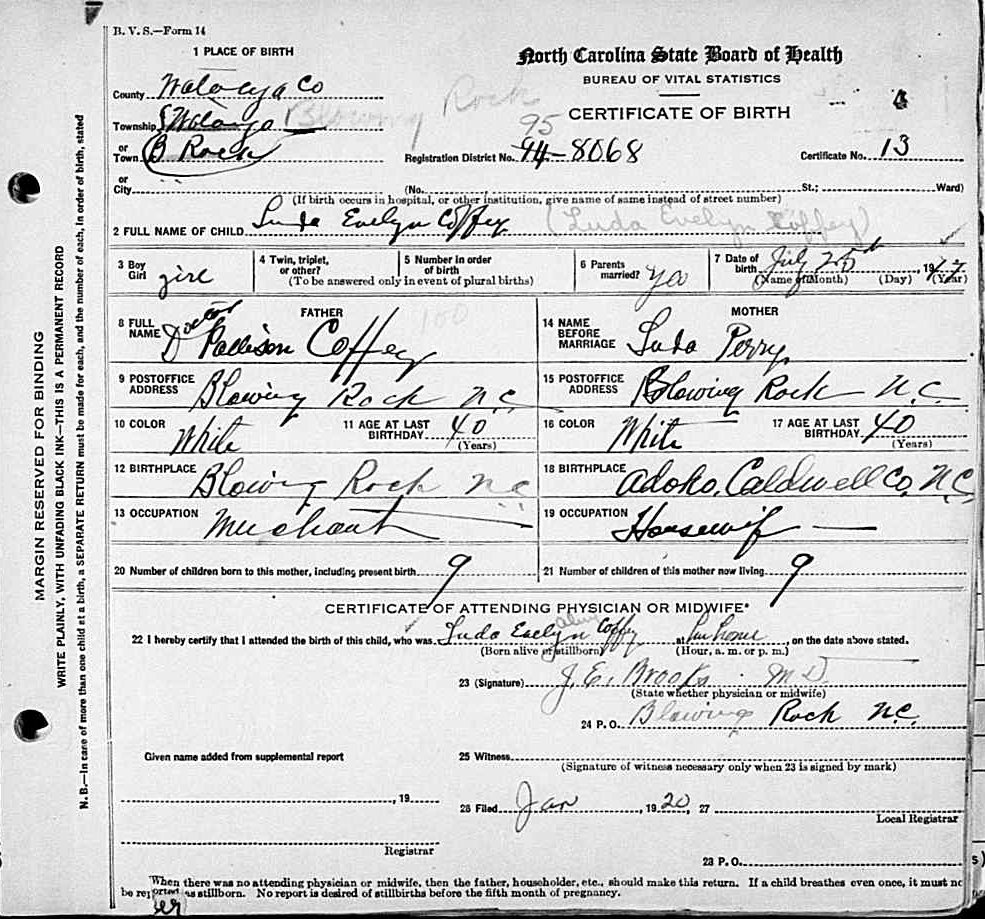 B. V. S.—Form 14
1 PLACE OF BIRTH
North Carolina State Board of Health
BUREAU OF VITAL STATISTICS
CERTIFICATE OF BIRTH
County Watauga Co
Township Watauga Blowing Rock
or
Town B Rock
95
Registration District No. 94-8068
Certificate No. 13
or
City (No. St.; Ward)
(If birth occurs in hospital, or other institution, give name of same instead of street number)
2 FULL NAME OF CHILD Luda Evelyn Coffey (Luda Evelyn Coffey)
3 Boy Girl girl
4 Twin, triplet, or other?
5 Number in order of birth
(To be answered only in event of plural births)
6 Parents married?
7 Date of birth July 25th, 1917
(Name of Month) (Day) (Year)
FATHER
100
8 FULL NAME Doctor Coffey
9 POSTOFFICE ADDRESS Blowing Rock N.C.
10 COLOR White
11 AGE AT LAST BIRTHDAY 40
(Years)
12 BIRTHPLACE Blowing Rock N.C.
13 OCCUPATION Merchant
MOTHER
14 NAME BEFORE MARRIAGE Luda Perry
15 POSTOFFICE ADDRESS Blowing Rock N.C.
16 COLOR White
17 AGE AT LAST BIRTHDAY 40
(Years)
18 BIRTHPLACE Adoko, Caldwell Co, N.C.
19 OCCUPATION Housewif
20 Number of children born to this mother, including present birth 9
21 Number of children of this mother now living 9
CERTIFICATE OF ATTENDING PHYSICIAN OR MIDWIFE*
22 I hereby certify that I attended the birth of this child, who was Luda Evelyn Coffey alive at home, on the date above stated.
(Born alive or stillborn) (Hour, a. m. or p. m.)
23 (Signature) J. E. Brooks M D.
(State whether physician or midwife)
24 P. O. Blowing Rock N.C.
Given name added from supplemental report
25 Witness
(Signature of witness necessary only when 23 is signed by mark)
, 19
26 Filed Jan, 1920, 27
Local Registrar
Registrar
28 P. O.
*When there was no attending physician or midwife, then the father, householder, etc., should make this return. If a child breathes even once, it must no
be reported as stillborn. No report is desired of stillbirths before the fifth month of pregnancy.
MARGIN RESERVED FOR BINDING
WRITE PLAINLY, WITH UNFADING BLACK INK—THIS IS A PERMANENT RECORD
N. B.—In case of more than one child at a birth, a SEPARATE RETURN must be made for each, and the number of each, in order of birth, stated